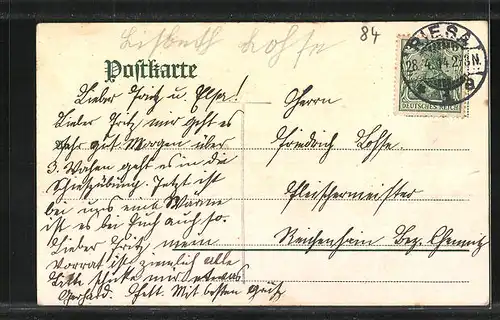 Lisbeth Lohse
84
Postkarte
RIESA
28.4.14.2-3N.
DEUTSCHES REICH
Lieber Fritz u. Elsa!
Lieber Fritz, mir geht es
sehr gut. Morgen über
3. Wochen geht es in die
Schießübung. Jetzt ist
bei uns eine Wärme
ist es bei Euch auch so.
Lieber Fritz mein
Vorrat ist ziemlich alle
Bitte schicke mir etwas
Gerhard. Fett. Mit besten Gruß
Herrn
Friedrich Lohse
Fleischermeister
Reichenhain Bez. Chemnitz